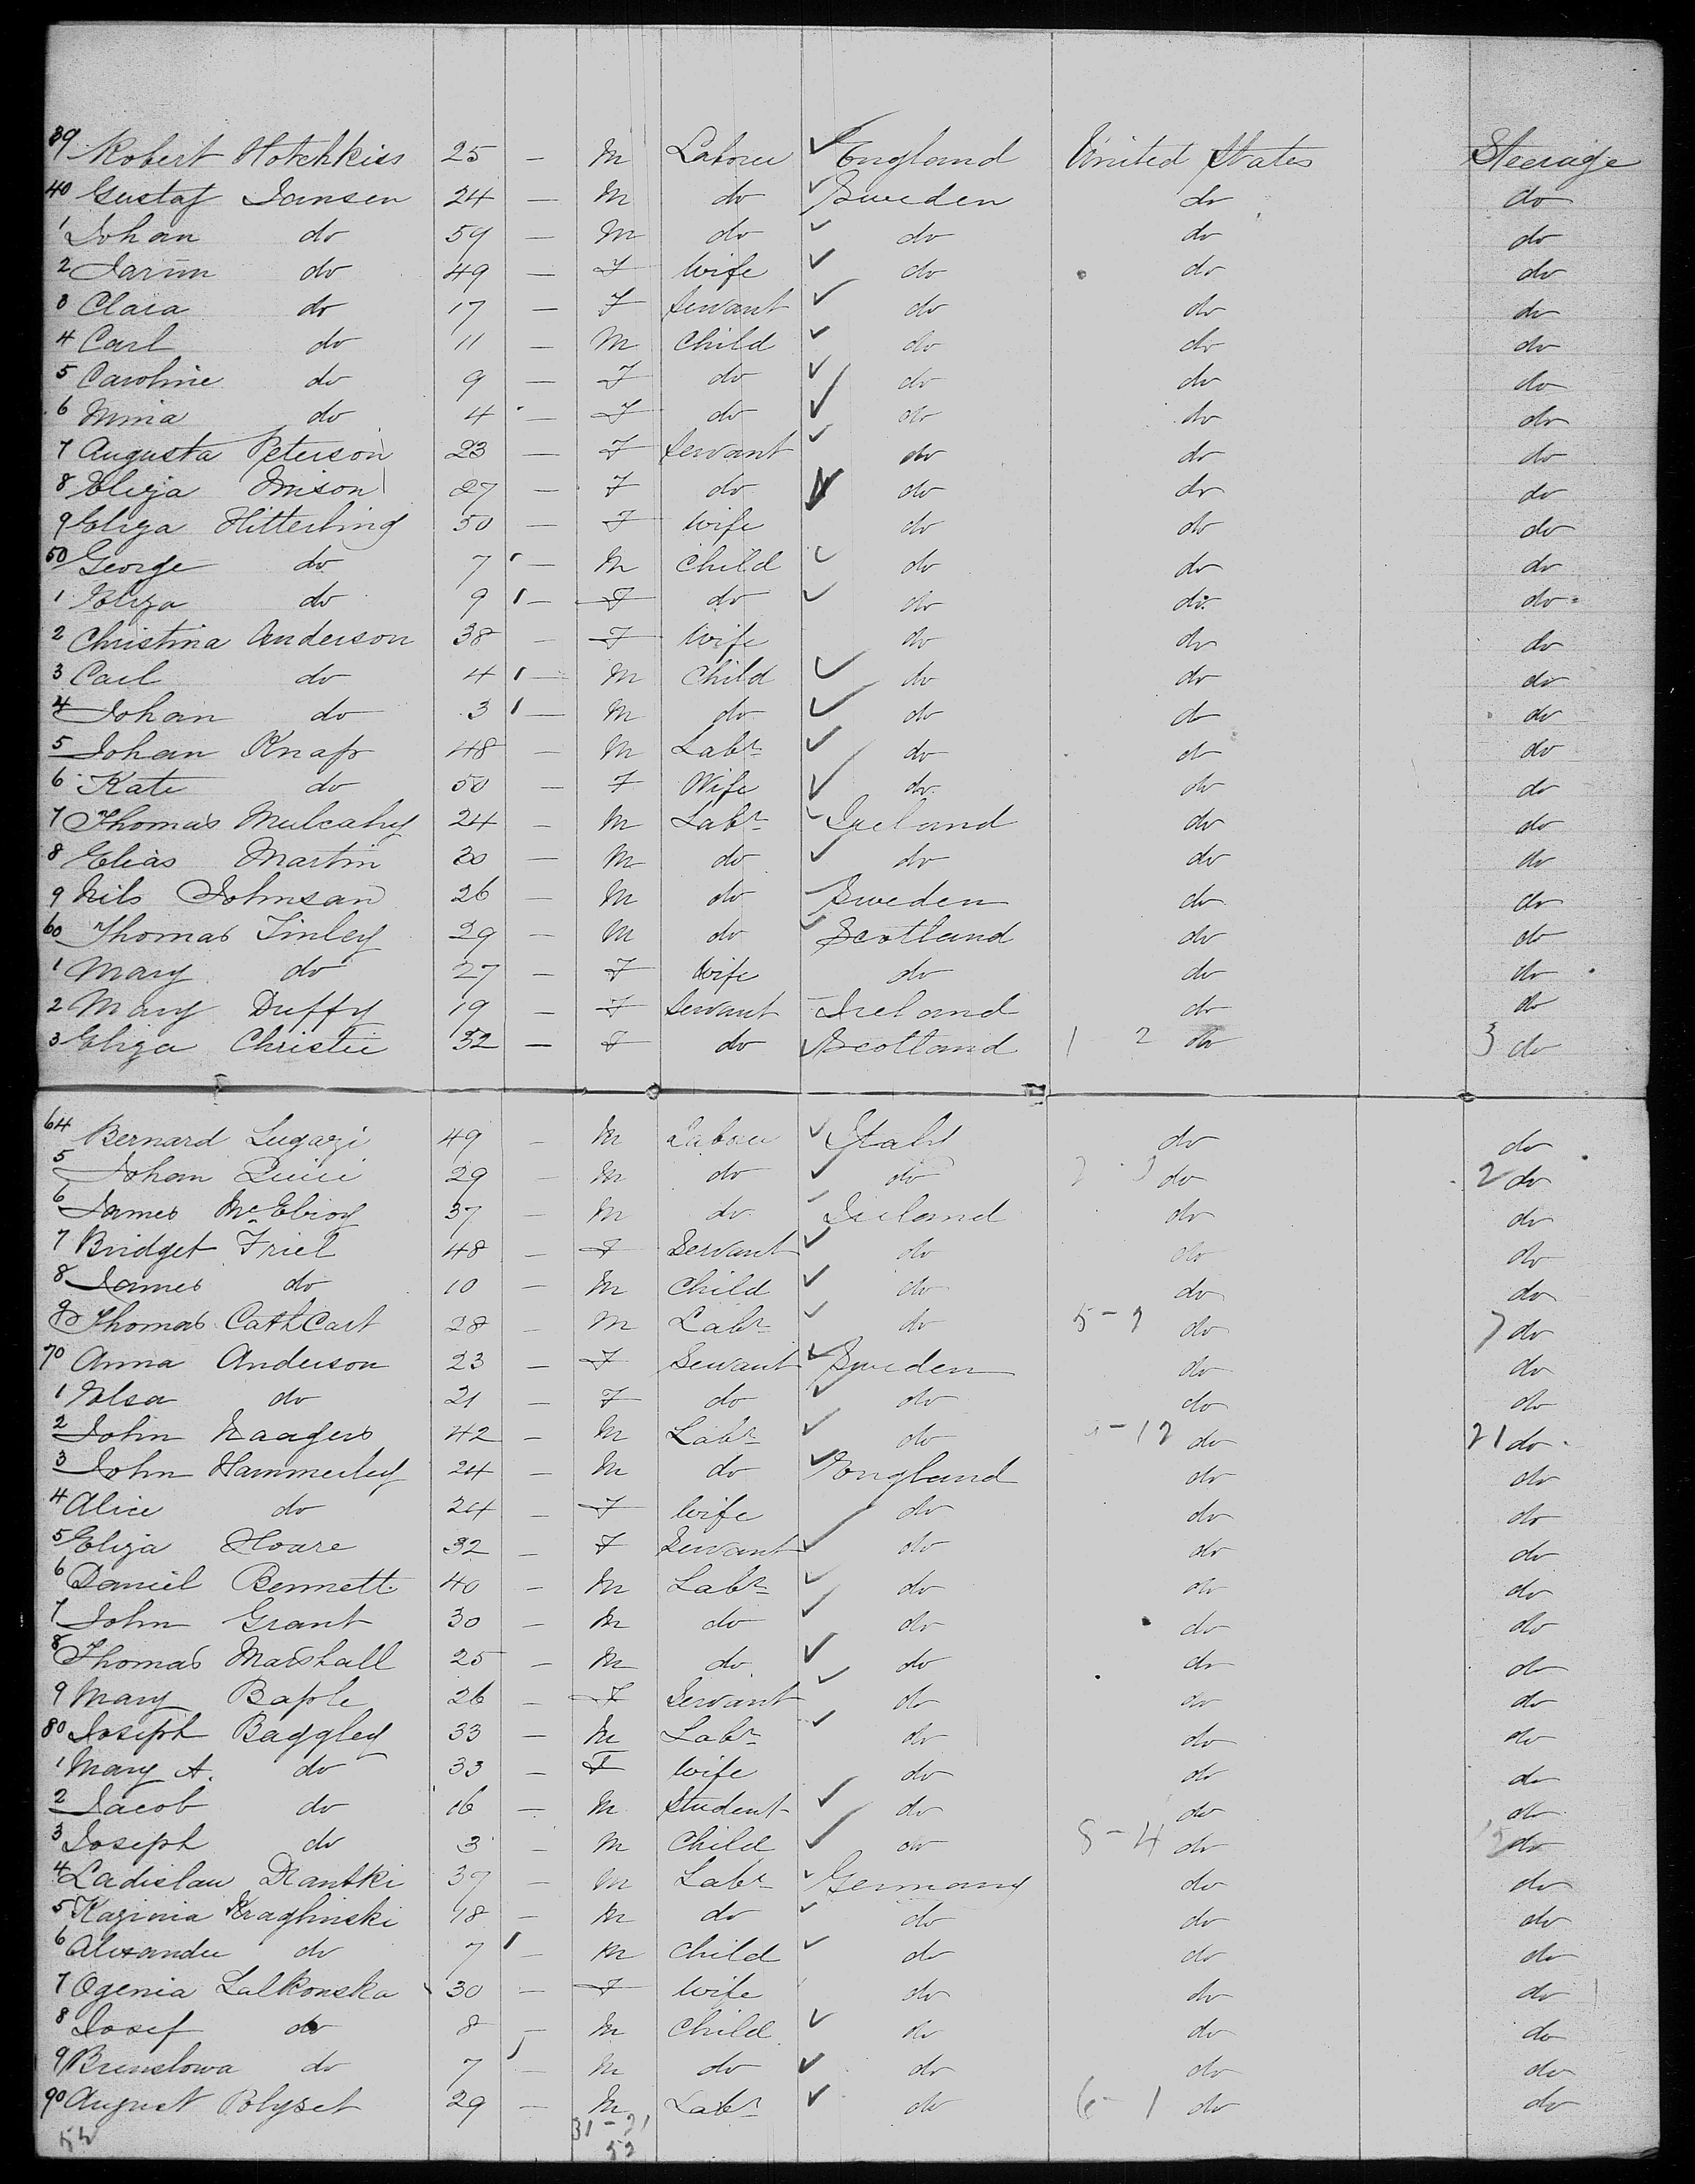 39 Robert Hotchkiss 25 — M Labour ✓ England United States Steerage
40 Gustaf Jansen 24 — M do ✓ Sweden do do
1 Johan do 59 — M do ✓ do do do
2 do 49 — F Wife ✓ do do do
3 Clara do 17 — F Servant ✓ do do do
4 Carl do 11 — M Child ✓ do do do
5 Caroline do 9 — F do ✓ do do do
6 Mina do 4 — F do ✓ do do do
7 Augusta Peterson 23 — F Servant ✓ do do do
8 Eliza 27 — F do ✓ do do do
9 Eliza Hitterling 50 — F Wife do do do
50 George do 7 — M Child ✓ do do do
1 Eliza do 9 — F do ✓ do do do
2 Christina Anderson 38 — F Wife do do do
3 Carl do 4 — M Child ✓ do do do
4 Johan do 3 — M do ✓ do do do
5 Johan Knap 48 — M Labr ✓ do do do
6 Kate do 50 — F Wife ✓ do do do
7 Thomas Mulcahy 24 — M Labr ✓ Ireland do do
8 Elias Martin 20 — M do ✓ do do do
9 Nils Johnsan 26 — M do Sweden do do
60 Thomas Finley 29 — M do ✓ Scotland do do
1 Mary do 27 — F Wife do do do
2 Mary Duffy 19 — F Servant Ireland do do
3 Eliza Christie 32 — F do ✓ Scotland 1 2 do 3 do
64 Bernard Lugazi 49 — M Labour ✓ Italy do do
5 Johan 29 — M do ✓ do do 2 do
6 James McElroy 37 — M do ✓ Ireland do do
7 Bridget Friel 48 — F Servant ✓ do do do
8 James do 10 — M Child ✓ do do do
9 Thomas CathCart 28 — M Labr ✓ do 5 - do 7 do
70 Anna Anderson 23 — F Servant ✓ Sweden do do
1 Elsa do 21 — F do ✓ do do do
2 John 42 — M Labr ✓ do - 12 do 21 do
3 John Hammerley 24 — M do ✓ England do do
4 Alice do 24 — F Wife do do do
5 Eliza Hoare 32 — F Servant ✓ do do do
6 Daniel Bennett 40 — M Labr ✓ do do do
7 John Grant 30 — M do ✓ do do do
8 Thomas Marshall 25 — M do ✓ do do do
9 Mary Baple 26 — F Servant ✓ do do do
80 Joseph Baggley 33 — M Labr ✓ do do do
1 Mary A. do 33 — F Wife do do do
2 Jacob do 16 — M Student ✓ do do do
3 Joseph do 3 — M Child ✓ do 8 - 4 do do
4 Ladislau 37 — M Labr ✓ Germany do do
5 Kazinia Kraghinski 18 — M do ✓ do do do
6 Alexander do 7 — M Child ✓ do do do
7 Ogenia Lalkonska 30 — F Wife do do do
8 Josef do 8 — M Child ✓ do do do
9 Brunslowa do 7 — M do ✓ do do do
90 August Polyset 29 — M Labr ✓ do 6 - 1 do do
52 31 - 21
52